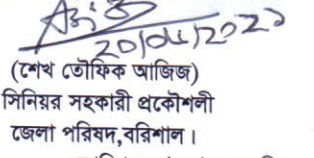 20/04/2022
(শেখ তৌফিক আজিজ)
সিনিয়র সহকারী প্রকৌশলী
জেলা পরিষদ,বরিশাল।